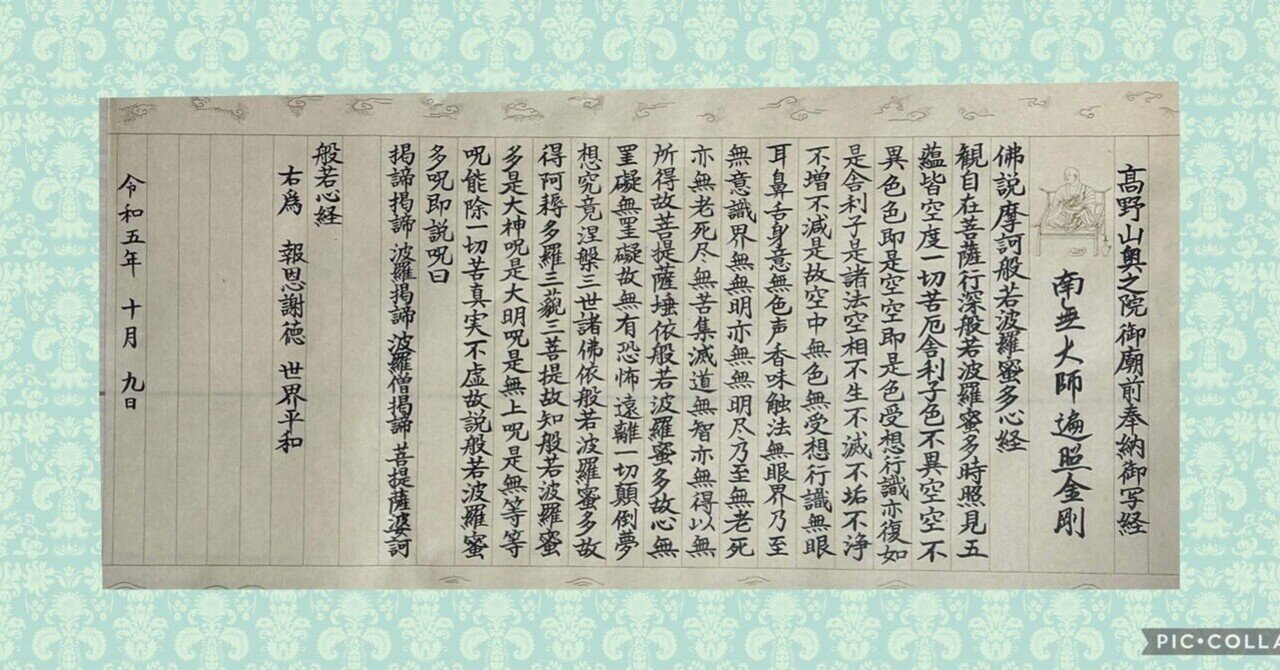 高野山奥之院御廟前奉納御写経
南無大師遍照金剛
佛説摩訶般若波羅蜜多心経
観自在菩薩行深般若波羅蜜多時照見五
蘊皆空度一切苦厄舎利子色不異空空不
異色色即是空空即是色受想行識亦復如
是舎利子是諸法空相不生不滅不垢不浄
不増不減是故空中無色無受想行識無眼
耳鼻舌身意無色声香味触法無眼界乃至
無意識界無無明亦無無明尽乃至無老死
亦無老死尽無苦集滅道無智亦無得以無
所得故菩提薩埵依般若波羅蜜多故心無
罣礙無罣礙故無有恐怖遠離一切顛倒夢
想究竟涅槃三世諸佛依般若波羅蜜多故
得阿耨多羅三藐三菩提故知般若波羅蜜
多是大神呪是大明呪是無上呪是無等等
呪能除一切苦真実不虚故説般若波羅蜜
多呪即説呪曰
掲諦掲諦 波羅掲諦 波羅僧掲諦 菩提薩婆訶
般若心経
右為 報恩謝徳 世界平和
令和五年 十月 九日
PIC•COLLA